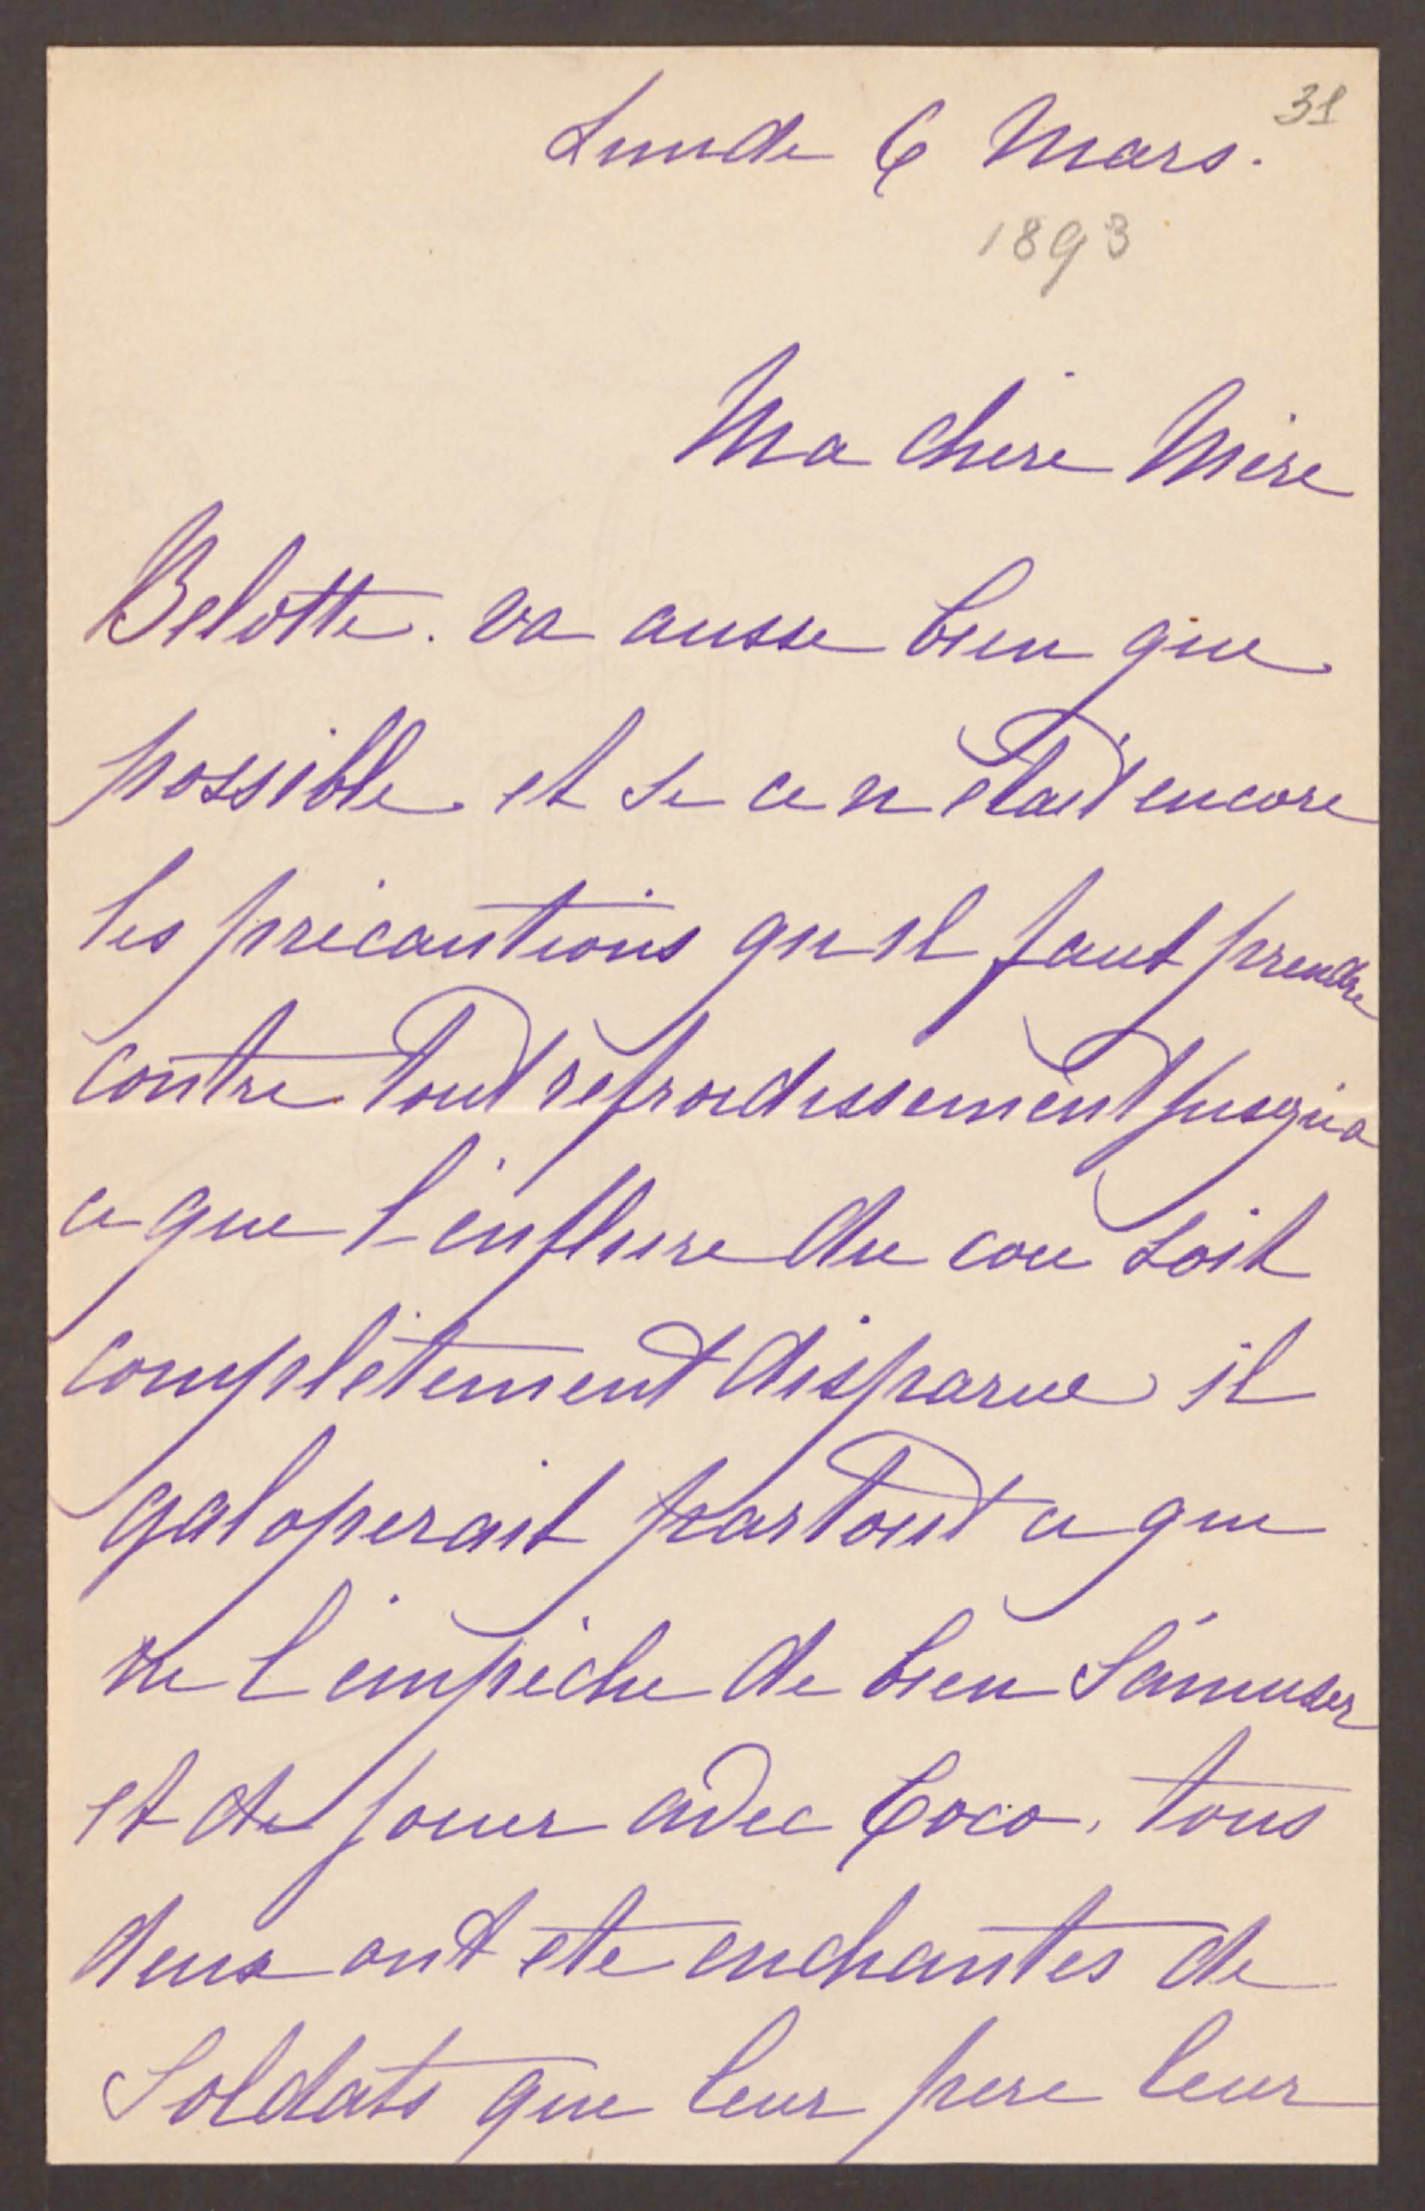 31
Lundi 6 Mars.
1893
Ma chère Mère
Belotte. va aussi bien que
possible et si ce n était encore
les précautions qu il faut prendre
contre tout refroidissement jusqu'à
ce que l'enflure du cou soit
complètement disparue il
galoperait partout ce qui
ne l'empêche de bien s'amuser
et de jouer avec Coco. tous
deux ont été enchantés de
soldats que leur père leur